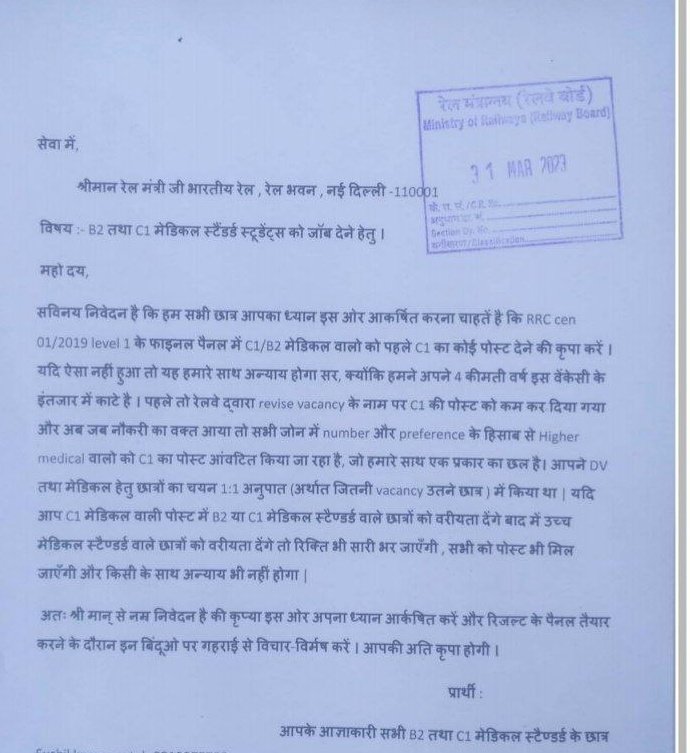 रेल मंत्रालय (रेलवे बोर्ड)
Ministry of Railways (Railway Board)
31 MAR 2023
Section Dy. No.
सेवा में,
श्रीमान रेल मंत्री जी भारतीय रेल , रेल भवन , नई दिल्ली -110001
विषय :- B2 तथा C1 मेडिकल स्टैंडर्ड स्टूडेंट्स को जॉब देने हेतु ।
महो दय,
सविनय निवेदन है कि हम सभी छात्र आपका ध्यान इस ओर आकर्षित करना चाहतें है कि RRC cen
01/2019 level 1 के फाइनल पैनल में C1/B2 मेडिकल वालो को पहले C1 का कोई पोस्ट देने की कृपा करें ।
यदि ऐसा नहीं हुआ तो यह हमारे साथ अन्याय होगा सर, क्योंकि हमने अपने 4 कीमती वर्ष इस वेंकेसी के
इंतजार में काटे है । पहले तो रेलवे द्वारा revise vacancy के नाम पर C1 की पोस्ट को कम कर दिया गया
और अब जब नौकरी का वक्त आया तो सभी जोन में number और preference के हिसाब से Higher
medical वालो को C1 का पोस्ट आंवटित किया जा रहा है, जो हमारे साथ एक प्रकार का छल है। आपने DV
तथा मेडिकल हेतु छात्रों का चयन 1:1 अनुपात (अर्थात जितनी vacancy उतने छात्र ) में किया था | यदि
आप C1 मेडिकल वाली पोस्ट में B2 या C1 मेडिकल स्टैण्डर्ड वाले छात्रों को वरीयता देंगे बाद में उच्च
मेडिकल स्टैण्डर्ड वाले छात्रों को वरीयता देंगे तो रिक्ति भी सारी भर जाएँगी , सभी को पोस्ट भी मिल
जाएँगी और किसी के साथ अन्याय भी नहीं होगा |
अतः श्री मान् से नम्र निवेदन है की कृप्या इस ओर अपना ध्यान आर्कषित करें और रिजल्ट के पैनल तैयार
करने के दौरान इन बिंदूओ पर गहराई से विचार-विर्मष करें । आपकी अति कृपा होगी ।
प्रार्थी :
आपके आज्ञाकारी सभी B2 तथा C1 मेडिकल स्टैण्डर्ड के छात्र